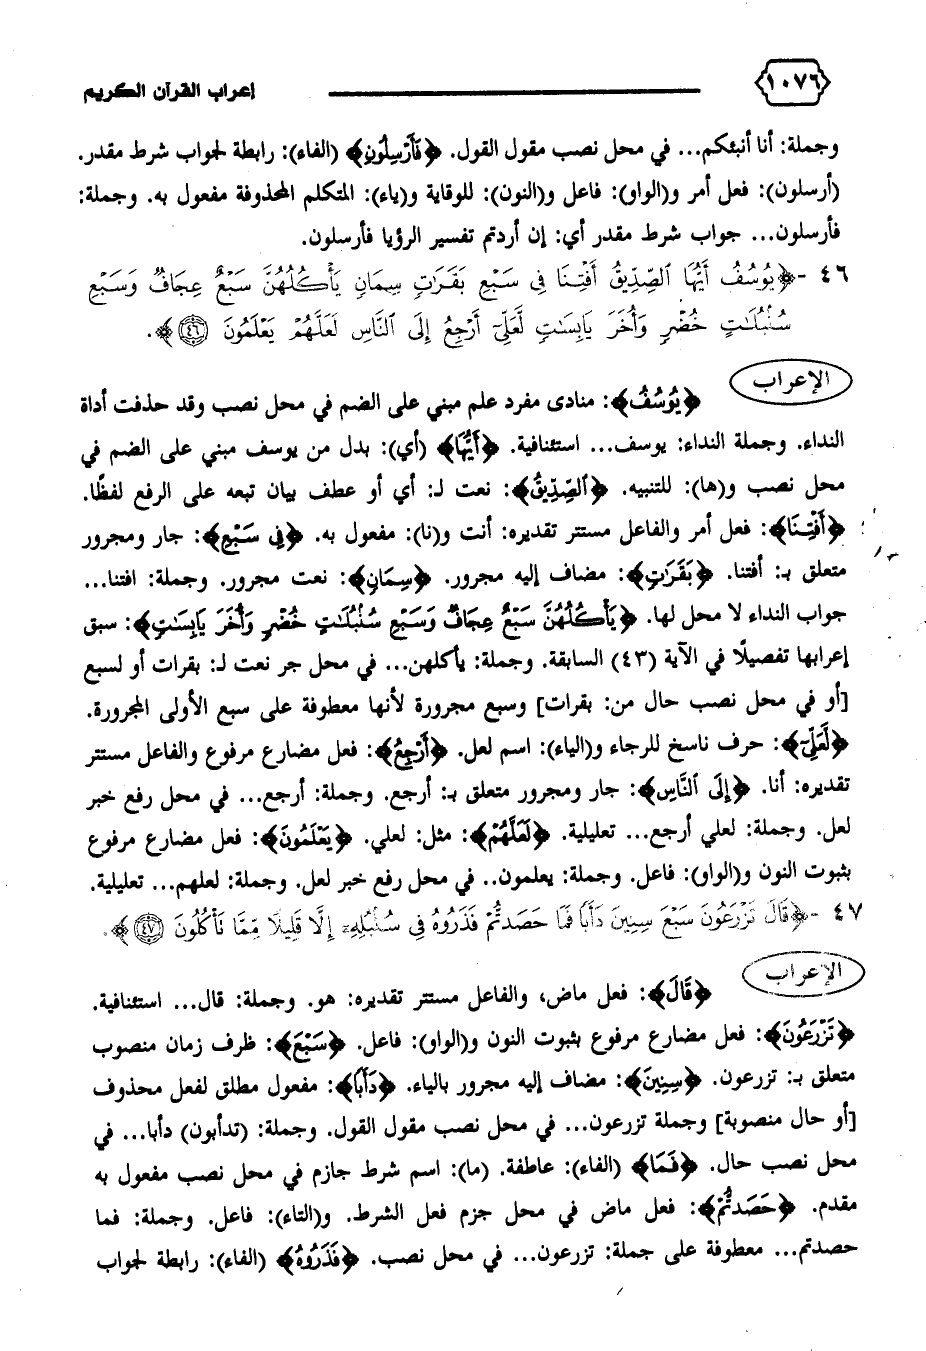 ١٠٧٦ إعراب القرآن الكريم
وجملة: أنا أنبئكم... في محل نصب مقول القول. ﴿فَأَرْسِلُونِ﴾ (الفاء): رابطة لجواب شرط مقدر.
(أرسلون): فعل أمر و(الواو): فاعل و(النون): للوقاية و(ياء): المتكلم المحذوفة مفعول به. وجملة:
فأرسلون... جواب شرط مقدر أي: إن أردتم تفسير الرؤيا فأرسلون.
٤٦ - ﴿يُوسُفُ أَيُّهَا ٱلصِّدِّيقُ أَفْتِنَا فِي سَبْعِ بَقَرَٰتٍ سِمَانٍ يَأْكُلُهُنَّ سَبْعٌ عِجَافٌ وَسَبْعِ
سُنۢبُلَٰتٍ خُضْرٍ وَأُخَرَ يَابِسَٰتٍ لَّعَلِّيٓ أَرْجِعُ إِلَى ٱلنَّاسِ لَعَلَّهُمْ يَعْلَمُونَ ٤٦﴾.
الإعراب ﴿يُوسُفُ﴾: منادى مفرد علم مبني على الضم في محل نصب وقد حذفت أداة
النداء. وجملة النداء: يوسف... استئنافية. ﴿أَيُّهَا﴾ (أي): بدل من يوسف مبني على الضم في
محل نصب و(ها): للتنبيه. ﴿ٱلصِّدِّيقُ﴾: نعت لـ: أي أو عطف بيان تبعه على الرفع لفظًا.
﴿أَفْتِنَا﴾: فعل أمر والفاعل مستتر تقديره: أنت و(نا): مفعول به. ﴿فِي سَبْعِ﴾: جار ومجرور
متعلق بـ: أفتنا. ﴿بَقَرَٰتٍ﴾: مضاف إليه مجرور. ﴿سِمَانٍ﴾: نعت مجرور. وجملة: افتنا...
جواب النداء لا محل لها. ﴿يَأْكُلُهُنَّ سَبْعٌ عِجَافٌ وَسَبْعِ سُنۢبُلَٰتٍ خُضْرٍ وَأُخَرَ يَابِسَٰتٍ﴾: سبق
إعرابها تفصيلًا في الآية (٤٣) السابقة. وجملة: يأكلهن... في محل جر نعت لـ: بقرات أو لسبع
[أو في محل نصب حال من: بقرات] وسبع مجرورة لأنها معطوفة على سبع الأولى المجرورة.
﴿لَّعَلِّيٓ﴾: حرف ناسخ للرجاء و(الياء): اسم لعل. ﴿أَرْجِعُ﴾: فعل مضارع مرفوع والفاعل مستتر
تقديره: أنا. ﴿إِلَى ٱلنَّاسِ﴾: جار ومجرور متعلق بـ: أرجع. وجملة: أرجع... في محل رفع خبر
لعل. وجملة: لعلي أرجع... تعليلية. ﴿لَعَلَّهُمْ﴾: مثل: لعلي. ﴿يَعْلَمُونَ﴾: فعل مضارع مرفوع
بثبوت النون و(الواو): فاعل. وجملة: يعلمون.. في محل رفع خبر لعل. وجملة: لعلهم... تعليلية.
٤٧ - ﴿قَالَ تَزْرَعُونَ سَبْعَ سِنِينَ دَأَبًا فَمَا حَصَدتُّمْ فَذَرُوهُ فِي سُنۢبُلِهِۦٓ إِلَّا قَلِيلًا مِّمَّا تَأْكُلُونَ ٤٧﴾.
الإعراب ﴿قَالَ﴾: فعل ماض، والفاعل مستتر تقديره: هو. وجملة: قال... استئنافية.
﴿تَزْرَعُونَ﴾: فعل مضارع مرفوع بثبوت النون و(الواو): فاعل. ﴿سَبْعَ﴾: ظرف زمان منصوب
متعلق بـ: تزرعون. ﴿سِنِينَ﴾: مضاف إليه مجرور بالياء. ﴿دَأَبًا﴾: مفعول مطلق لفعل محذوف
[أو حال منصوبة] وجملة تزرعون... في محل نصب مقول القول. وجملة: (تدأبون) دأبا... في
محل نصب حال. ﴿فَمَا﴾ (الفاء): عاطفة. (ما): اسم شرط جازم في محل نصب مفعول به
مقدم. ﴿حَصَدتُّمْ﴾: فعل ماض في محل جزم فعل الشرط. و(التاء): فاعل. وجملة: فما
حصدتم... معطوفة على جملة: تزرعون... في محل نصب. ﴿فَذَرُوهُ﴾ (الفاء): رابطة لجواب